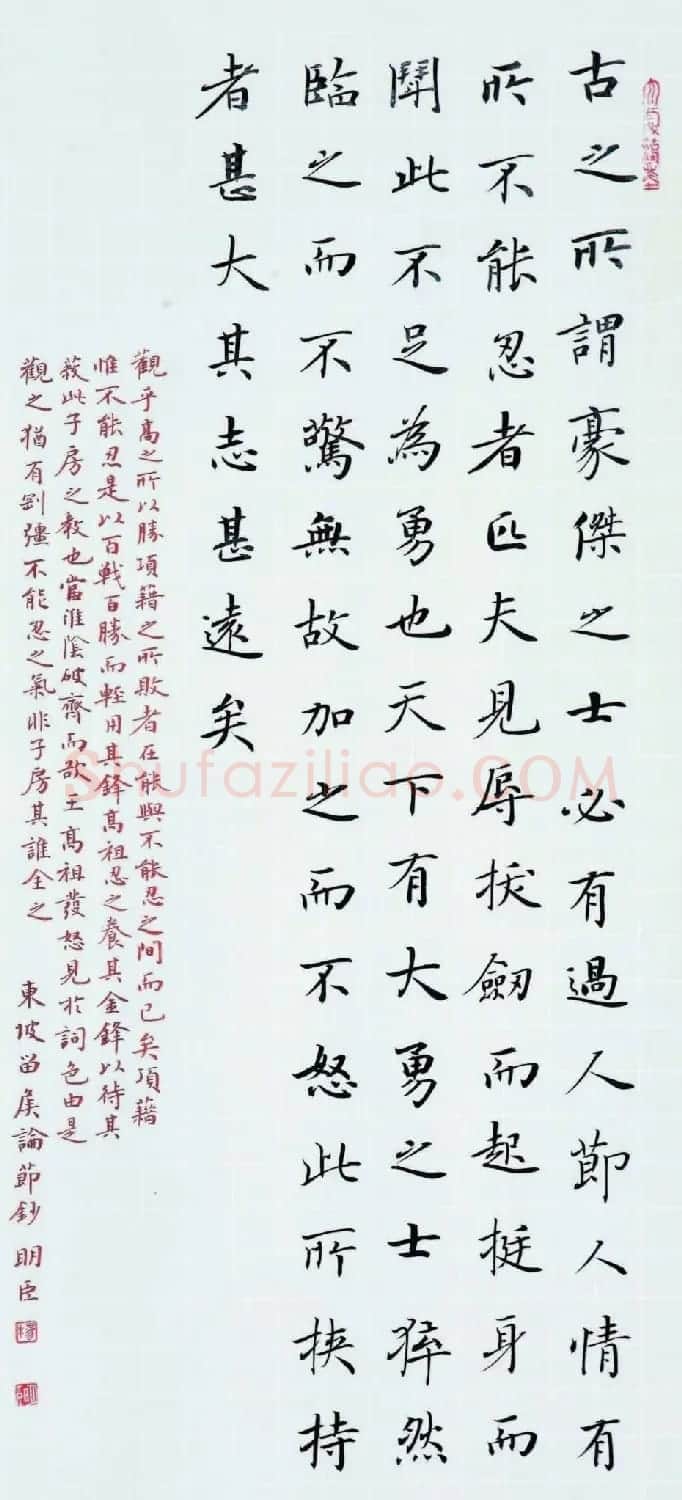 古之所謂豪傑之士必有過人節人情有
所不能忍者匹夫見辱拔劔而起挺身而
鬪此不足為勇也天下有大勇之士猝然
臨之而不驚無故加之而不怒此所挾持
者甚大其志甚遠矣
觀乎高之所以勝項籍之所敗者在能與不能忍之間而已矣項籍
惟不能忍是以百戰百勝而輕用其鋒高祖忍之養其全鋒以待其
此子房之教也當淮陰破齊而欲王高祖發怒見於詞色由是
觀之猶有剛彊不能忍之氣非子房其誰全之 東坡留侯論節鈔 明臣
Shufaziliao.COM